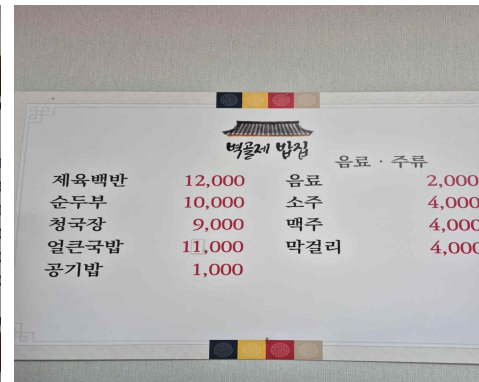 벽골제 밥집
음료 · 주류
제육백반 12,000
순두부 10,000
청국장 9,000
얼큰국밥 11,000
공기밥 1,000
음료 2,000
소주 4,000
맥주 4,000
막걸리 4,000